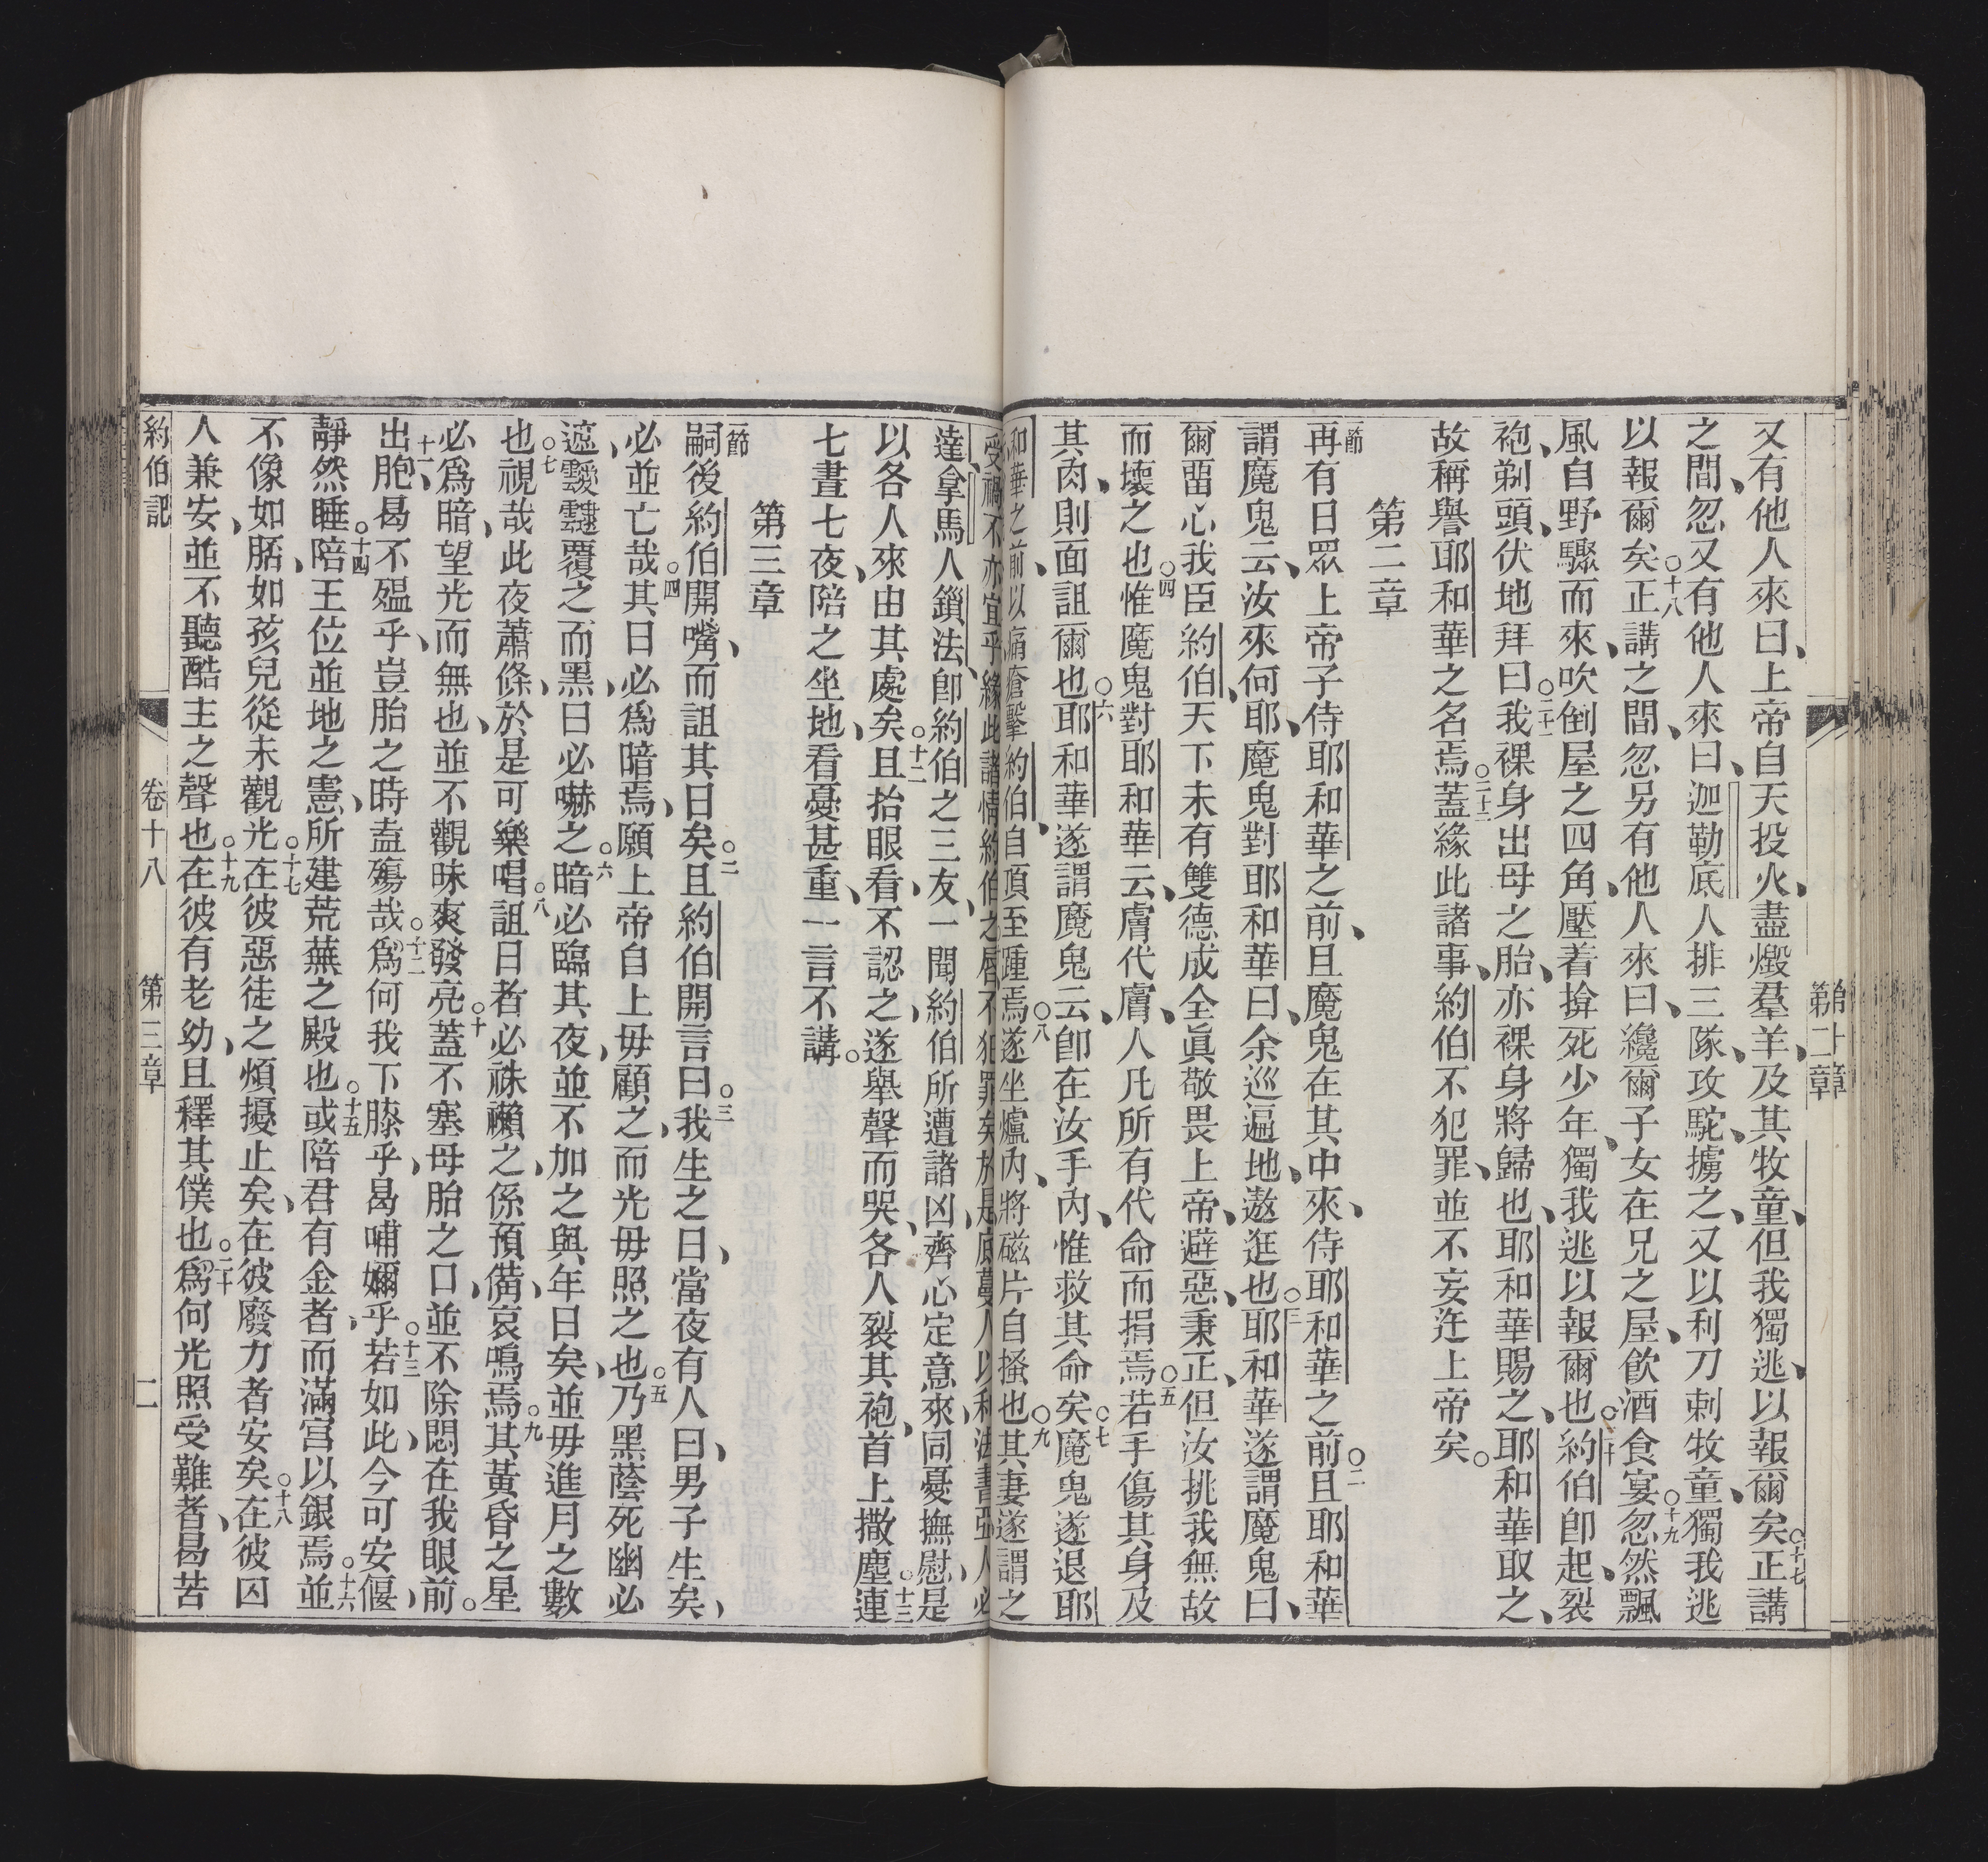 又有他人來曰、上帝自天投火、盡燬羣羊、及其牧童、但我獨逃、以報爾矣○十七正講
之間、忽又有他人來曰、迦勒底人排三隊、攻駝、擄之、又以利刀刺牧童、獨我逃
以報爾矣○十八正講之間、忽另有他人來曰、纔爾子女在兄之屋、飲酒食宴○十九忽然飄
風自野驟而來、吹倒屋之四角、壓着揜死少年、獨我逃以報爾也○二十約伯卽起、裂
袍、剃頭、伏地拜曰○二十一我裸身出母之胎、亦裸身將歸也、耶和華賜之、耶和華取之、
故稱譽耶和華之名焉○二十二蓋緣此諸事、約伯不犯罪、並不妄迕上帝矣○
第二章
一節再有日眾上帝子侍耶和華之前、且魔鬼在其中來、侍耶和華之前○二且耶和華
謂魔鬼云、汝來何耶、魔鬼對耶和華曰、余巡遍地、遨逛也○三耶和華遂謂魔鬼曰、
爾畱心我臣約伯、天下未有雙德成全、眞敬畏上帝、避惡、秉正、但汝挑我無故
而壞之也○四惟魔鬼對耶和華云、膚代膚、人凡所有代命而捐焉○五若手傷其身及
其肉、則面詛爾也○六耶和華遂謂魔鬼云、卽在汝手內、惟救其命矣○七魔鬼遂退耶
和華之前、以痛瘡擊約伯、自頂至踵焉○八遂坐爐內、將磁片自搔也○九其妻遂謂之
受禍、不亦宜乎、緣此諸情約伯之唇不犯罪矣於是底蔓人以利法書亞人必
達、拿馬人鎖法、卽約伯之三友、一聞約伯所遭諸凶、齊心定意來、同憂撫慰、是
以各人來由其處矣○十二且抬眼看、不認之、遂舉聲而哭、各人裂其袍、首上撒塵○十三連
七晝七夜、陪之坐地、看憂甚重、一言不講○
第三章
一節嗣後約伯開嘴、而詛其日矣○二且約伯開言曰○三我生之日、當夜有人曰、男子生矣、
必並亡哉○四其日必爲暗焉、願上帝自上毋顧之、而光毋照之也○五乃黑蔭死幽必
遮、靉靆覆之、而黑日必嚇之○六暗必臨其夜、並不加之與年日矣、並毋進月之數
也○七視哉此夜蕭條、於是可樂唱○八詛日者必祩禷之、係預備、哀鳴焉○九其黃昏之星
必爲暗、望光而無也、並不觀昧爽發亮○十蓋不塞母胎之口、並不除悶在我眼前○
十一出胞、曷不殟乎、豈胎之時盍殤哉○十二爲何我下膝乎、曷哺嬭乎○十三若如此、今可安偃、
靜然睡○十四陪王位並地之憲、所建荒蕪之殿也○十五或陪君有金者、而滿宮以銀焉○十六並
不像如胚、如孩兒從未觀光○十七在彼惡徒之煩擾止矣、在彼廢力者安矣○十八在彼囚
人兼安、並不聽酷主之聲也○十九在彼有老幼、且釋其僕也○二十爲何光照受難者、曷苦
約伯記
卷十八
第三章
二
第二章